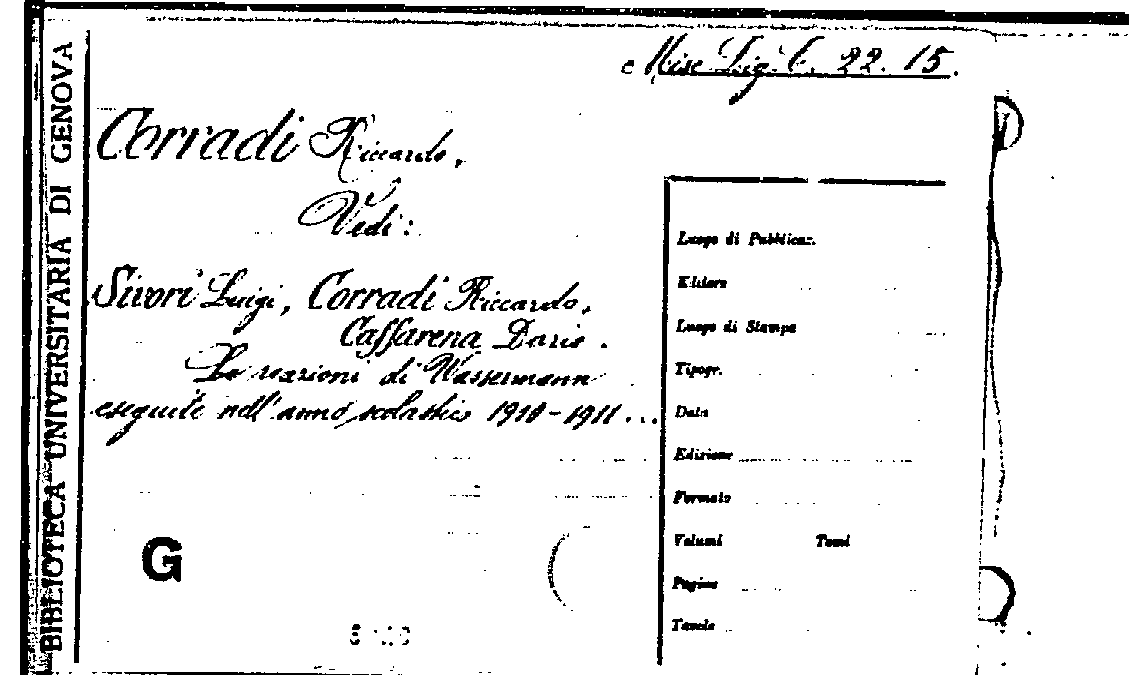 Misc. Lig. C. 22. 15.
BIBLIOTECA UNIVERSITARIA DI GENOVA
Corradi Riccardo,
Vedi:
Sivori Luigi, Corradi Riccardo,
Caffarena Dario.
Le reazioni di Wassermann
eseguite nell'anno scolastico 1910-1911...
Luogo di Pubblicaz.
Editore
Luogo di Stampa
Tipogr.
Data
Edizione
Formato
Volumi Tomi
Pagine
Tavole
G